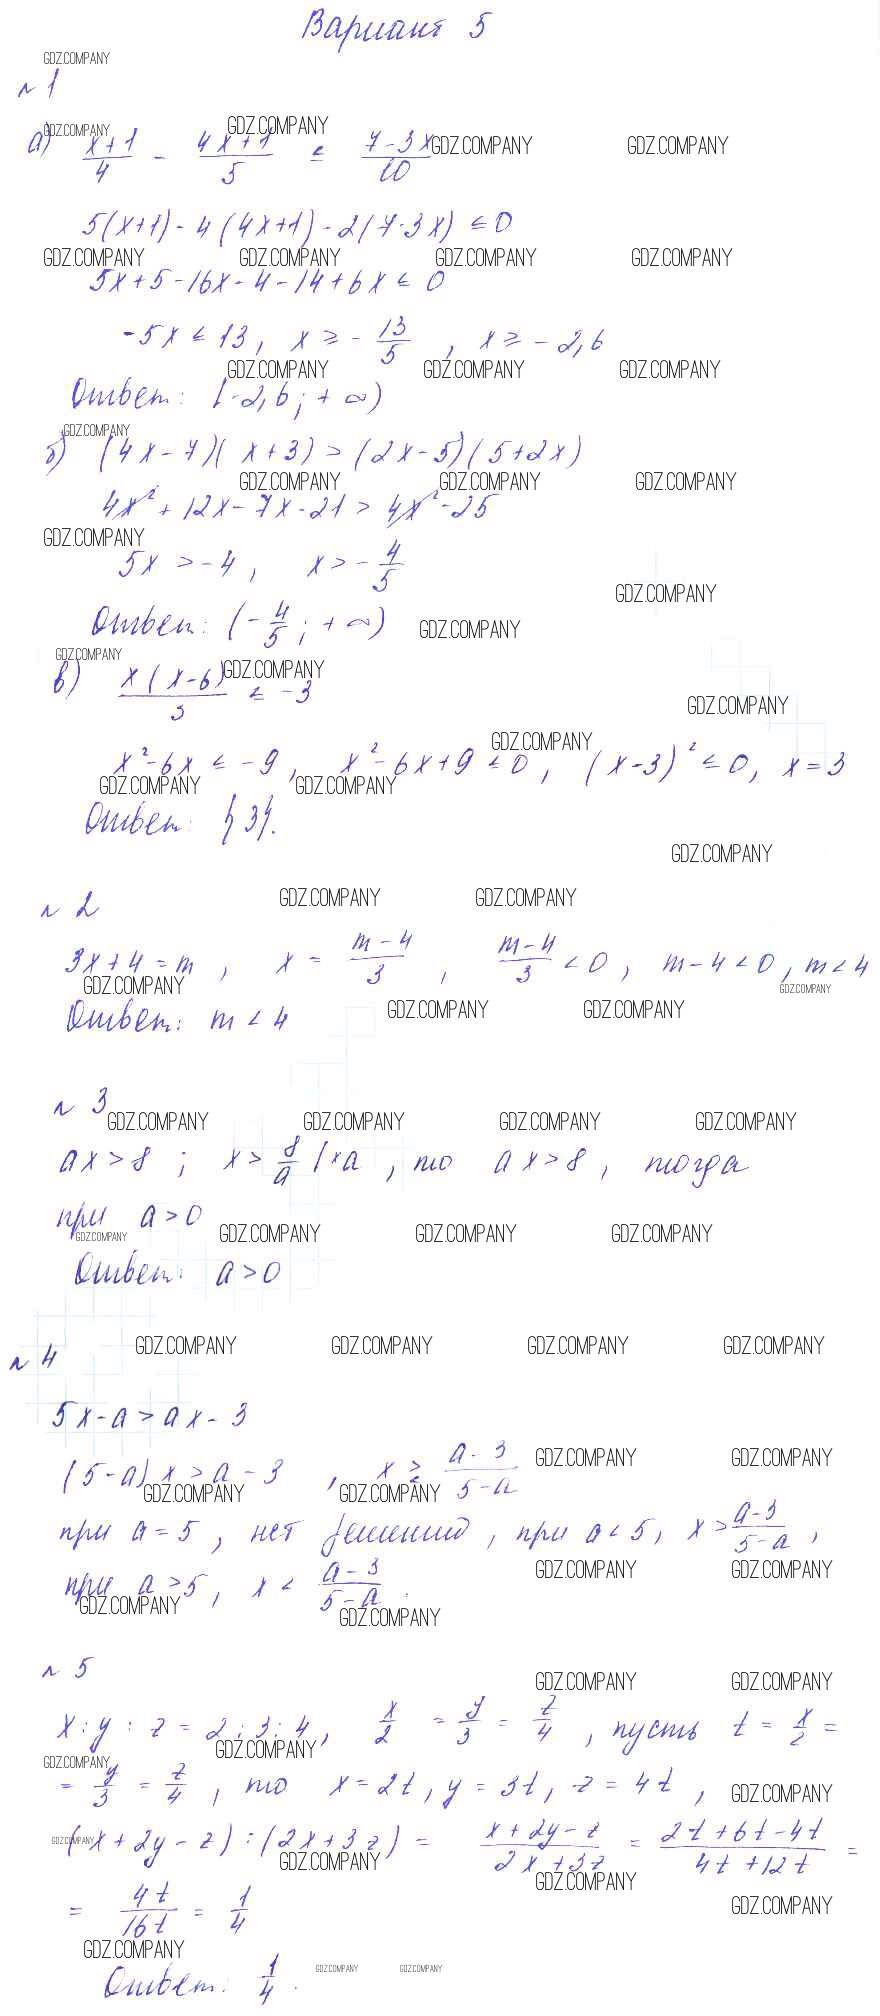 Вариант 5
GDZ.COMPANY
№ 1
GDZ.COMPANY GDZ.COMPANY GDZ.COMPANY GDZ.COMPANY
а) (x+1)/4 - (4x+1)/5 ≤ (7-3x)/10
5(x+1) - 4(4x+1) - 2(7-3x) ≤ 0
GDZ.COMPANY GDZ.COMPANY GDZ.COMPANY GDZ.COMPANY
5x+5-16x-4-14+6x ≤ 0
-5x ≤ 13, x ≥ -13/5, x ≥ -2,6
GDZ.COMPANY GDZ.COMPANY GDZ.COMPANY
Ответ: [-2,6; +∞)
GDZ.COMPANY
б) (4x-7)(x+3) > (2x-5)(5+2x)
GDZ.COMPANY GDZ.COMPANY GDZ.COMPANY
4x²+12x-7x-21 > 4x²-25
GDZ.COMPANY
5x > -4, x > -4/5
GDZ.COMPANY
Ответ: (-4/5; +∞)
GDZ.COMPANY
GDZ.COMPANY GDZ.COMPANY
в) x(x-6)/3 ≤ -3
GDZ.COMPANY
GDZ.COMPANY
x²-6x ≤ -9, x²-6x+9 ≤ 0, (x-3)² ≤ 0, x=3
GDZ.COMPANY GDZ.COMPANY
Ответ: {3}.
GDZ.COMPANY
GDZ.COMPANY GDZ.COMPANY
№ 2
3x+4=m, x = (m-4)/3, (m-4)/3 < 0, m-4<0, m<4
GDZ.COMPANY GDZ.COMPANY
Ответ: m < 4
GDZ.COMPANY GDZ.COMPANY
№ 3
GDZ.COMPANY GDZ.COMPANY GDZ.COMPANY GDZ.COMPANY
ax > 8; x > 8/a |×a, то ax > 8, тогда
при a > 0
GDZ.COMPANY GDZ.COMPANY GDZ.COMPANY GDZ.COMPANY
Ответ: a > 0
GDZ.COMPANY GDZ.COMPANY GDZ.COMPANY GDZ.COMPANY
№ 4
5x-a > ax-3
GDZ.COMPANY GDZ.COMPANY
(5-a)x > a-3, x ≥ (a-3)/(5-a)
GDZ.COMPANY GDZ.COMPANY
при a=5, нет решений, при a<5, x > (a-3)/(5-a),
GDZ.COMPANY GDZ.COMPANY
при a>5, x < (a-3)/(5-a).
GDZ.COMPANY GDZ.COMPANY
№ 5
GDZ.COMPANY GDZ.COMPANY
x:y:z = 2:3:4, x/2 = y/3 = z/4, пусть t = x/2 =
GDZ.COMPANY GDZ.COMPANY
= y/3 = z/4, то x=2t, y=3t, z=4t,
GDZ.COMPANY
GDZ.COMPANY
(x+2y-z):(2x+3z) = (x+2y-z)/(2x+3z) = (2t+6t-4t)/(4t+12t) =
GDZ.COMPANY GDZ.COMPANY
GDZ.COMPANY
= 4t/16t = 1/4
GDZ.COMPANY
GDZ.COMPANY GDZ.COMPANY
Ответ: 1/4.